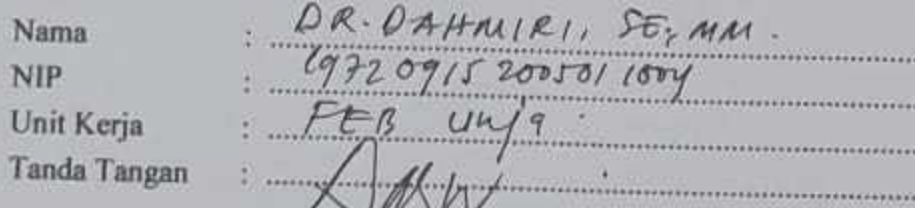 Nama : DR. DAHMIRI, SE, MM.
NIP : 19720915 200501 1004
Unit Kerja : FEB Unja
Tanda Tangan :